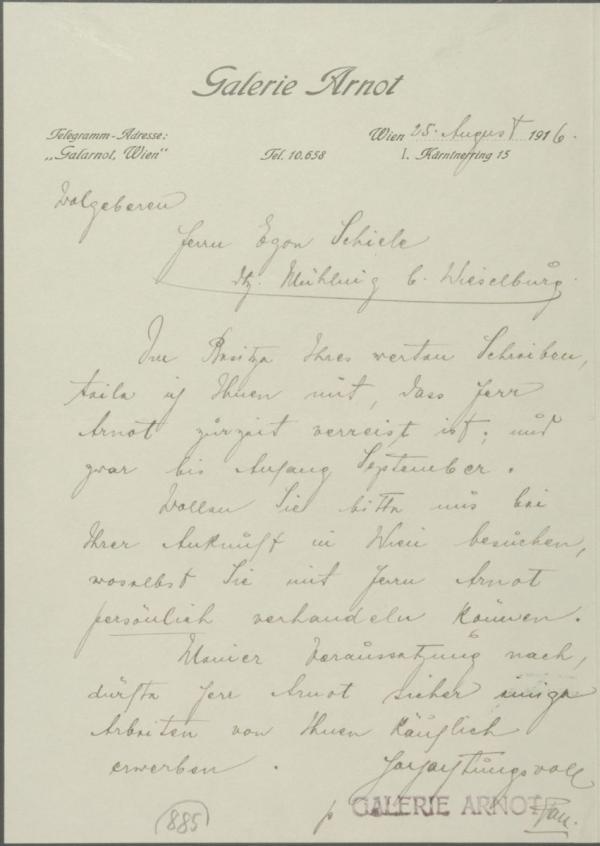 Galerie Arnot
Telegramm-Adresse:
„Galarnot, Wien“
Tel. 10.658
Wien 25. August 1916.
I. Kärntnerring 15
Wolgeboren
Herrn Egon Schiele
dz. Mühling b. Wieselburg.
Im Besitze Ihres werten Schreiben,
teile ich Ihnen mit, dass Herr
Arnot zurzeit verreist ist; und
zwar bis Anfang September.
Wollen Sie bitte uns bei
Ihrer Ankunft in Wien besuchen,
woselbst Sie mit Herrn Arnot
persönlich verhandeln können.
Meiner Voraussetzung nach,
dürfte Herr Arnot sicher einige
Arbeiten von Ihnen käuflich
erwerben. Hochachtungsvoll
p GALERIE ARNOT
885